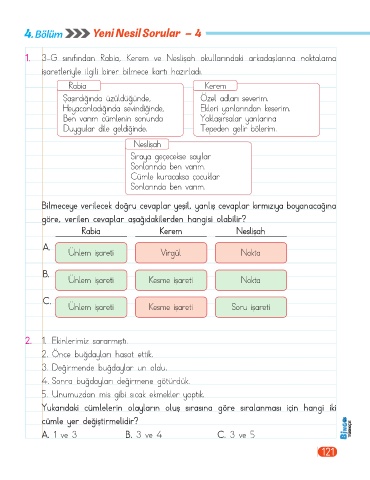 4. Bölüm Yeni Nesil Sorular - 4
1. 3-G sınıfından Rabia, Kerem ve Neslişah okullarındaki arkadaşlarına noktalama
işaretleriyle ilgili birer bilmece kartı hazırladı.
Rabia
Şaşırdığında üzüldüğünde,
Heyecanladığında sevindiğinde,
Ben varım cümlenin sonunda
Duygular dile geldiğinde.
Kerem
Özel adları severim.
Ekleri yanlarından keserim.
Yaklaşırsalar yanlarına
Tepeden gelir bölerim.
Neslişah
Sıraya geçecekse sayılar
Sonlarında ben varım.
Cümle kuracaksa çocuklar
Sonlarında ben varım.
Bilmeceye verilecek doğru cevaplar yeşil, yanlış cevaplar kırmızıya boyanacağına
göre, verilen cevaplar aşağıdakilerden hangisi olabilir?
Rabia Kerem Neslişah
A. Ünlem işareti Virgül Nokta
B. Ünlem işareti Kesme işareti Nokta
C. Ünlem işareti Kesme işareti Soru işareti
2. 1. Ekinlerimiz sararmıştı.
2. Önce buğdayları hasat ettik.
3. Değirmende buğdaylar un oldu.
4. Sonra buğdayları değirmene götürdük.
5. Unumuzdan mis gibi sıcak ekmekler yaptık.
Yukarıdaki cümlelerin olayların oluş sırasına göre sıralanması için hangi iki
cümle yer değiştirmelidir?
A. 1 ve 3 B. 3 ve 4 C. 3 ve 5
121